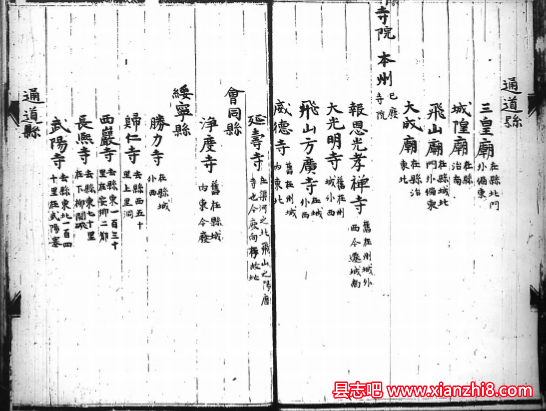 通道縣
三皇廟 在縣北門外偏東
城隍廟 在縣治南
飛山廟 在縣城北門外偏東
大成廟 在縣治東北
寺院 本州 已廢寺院
報恩光孝禪寺 舊在州城外西今遷城南
大光明寺 舊在州城外西
飛山方廣寺 在城外西
威德寺 舊在州城內東北
延壽寺 在渠河之北飛山之陽廢寺也今廢向存故址
會同縣
淨度寺 舊在縣城內東今廢
綏寧縣
勝力寺 在縣城外西
歸仁寺 去縣西五十里上里洞
西巖寺 去縣東一百三十里在安鄉二都
長熙寺 去縣東七十里在下柳関
武陽寺 去縣東北一百四十里在武陽寨
通道縣
县志吧 www.xianzhi8.com